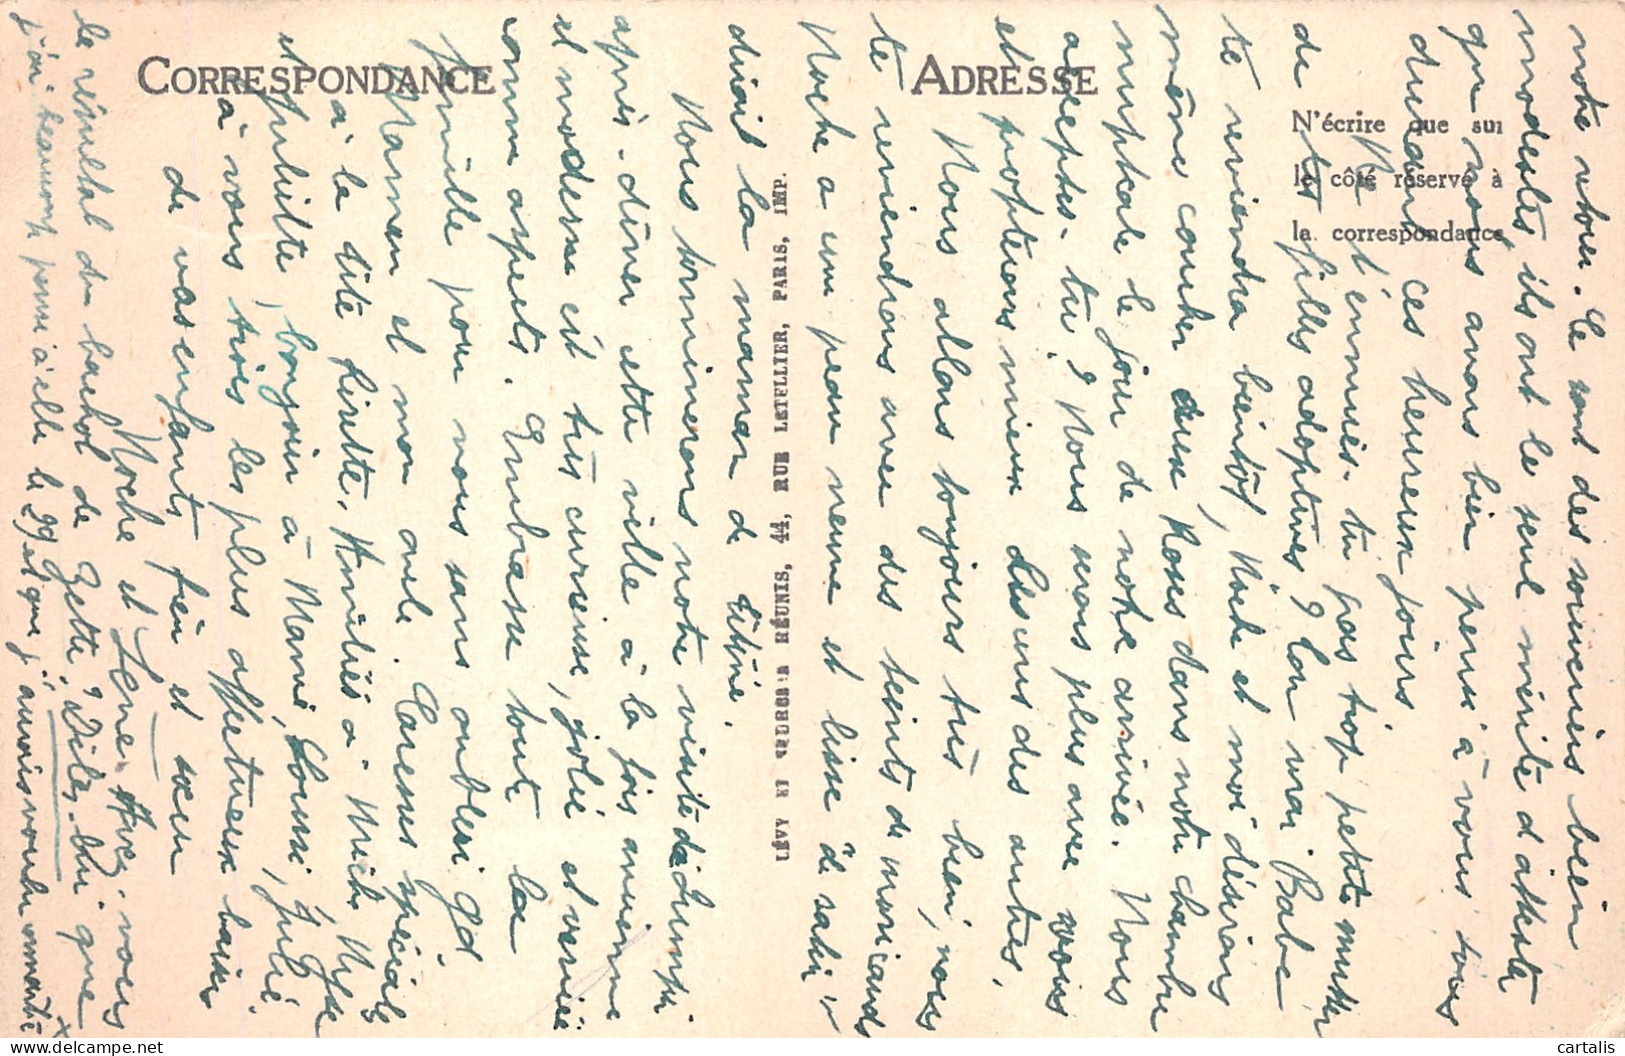 CORRESPONDANCE
ADRESSE
N'écrire que sur
le côté réservé à
la correspondance
LÉVY ET NEURDEIN RÉUNIS, 44, RUE LETELLIER, PARIS, IMP.
notre retour. Ce sont des souvenirs bien
modestes, ils ont le seul mérite d'attester
que nous avons bien pensé à vous tous
durant ces heureux jours
Ne t'ennuies-tu pas trop petite
de tes filles adoptives ? Ton vrai Bébé
te reviendra bientôt, Noche et moi désirons
même coucher aux Roses dans notre chambre
nuptiale le jour de notre arrivée. Nous
acceptes-tu ? Nous vous plus avec vous
et nous mieux les uns des autres.
Nous allons toujours très bien, nous
te reviendrons avec des teints de moricauds
Noche a un peu neume et lisse le
dirait la maman de Titine.
Nous terminerons notre visite de
après-dîner cette ville à la fois ancienne
et moderne est très curieuse, jolie et variée
comme aspects. Embrasse tout la
famille pour nous sans oublier gd
Maman et mon oncle. Caresses spéciales
à la tite Lisette. Amitiés à
et Juliette, bonjour à Mamé, Julie
à vous trois les plus affectueux baisers
de vos enfants, frère et sœur
Noche et Lène. Avez-vous
le résultat du bachot de Zette ? Dites-lui que
j'ai beaucoup pensé à elle le 29 et que j'aurais voulu